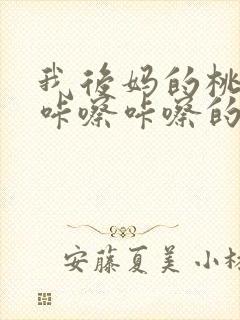 我后妈的桃
咔嚓咔嚓的
安藤夏美 小林